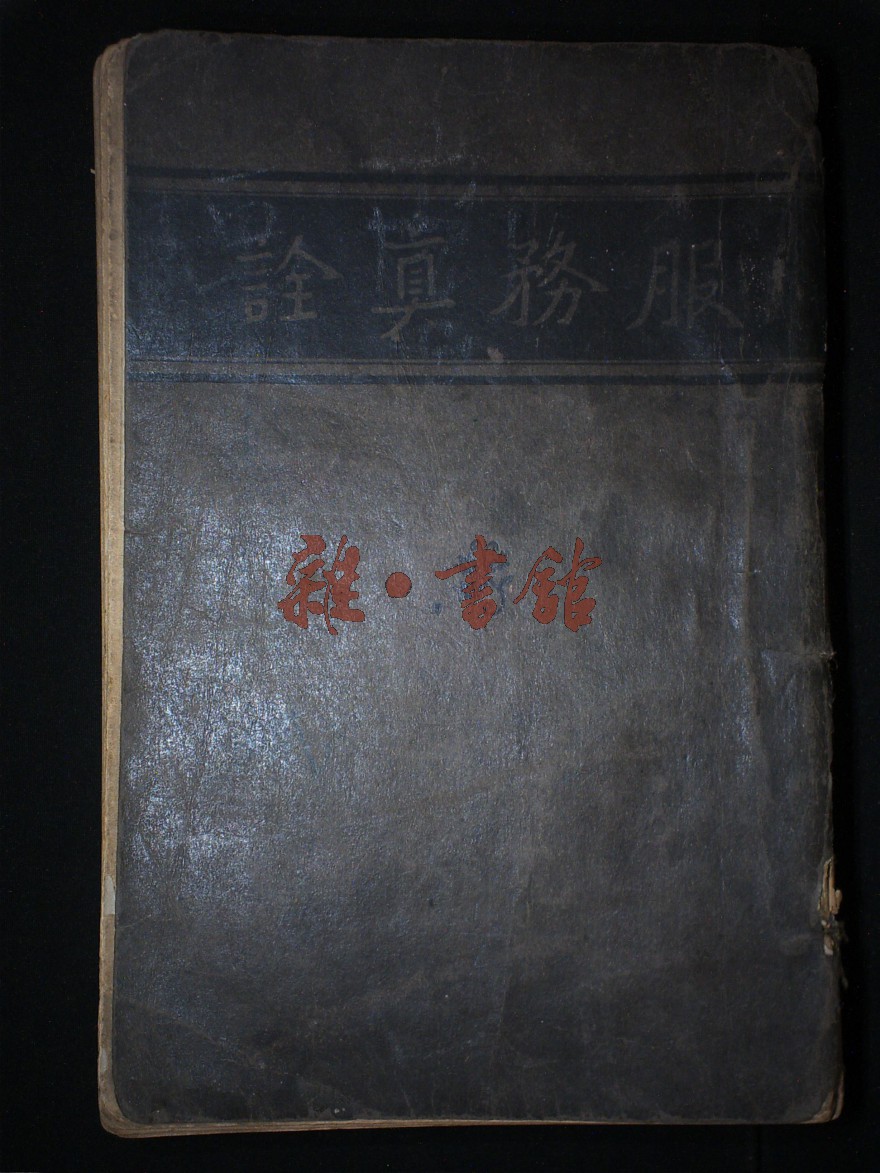 服務真詮
雜·書館